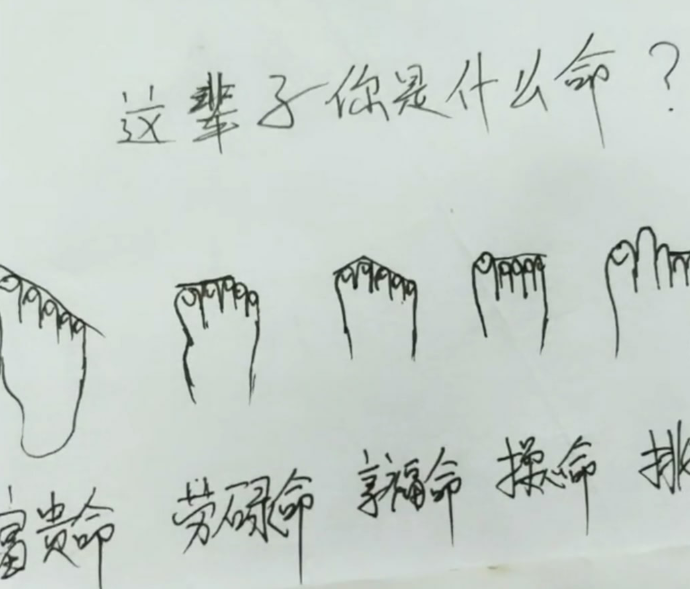 这辈子你是什么命？
富贵命 劳碌命 享福命 操心命